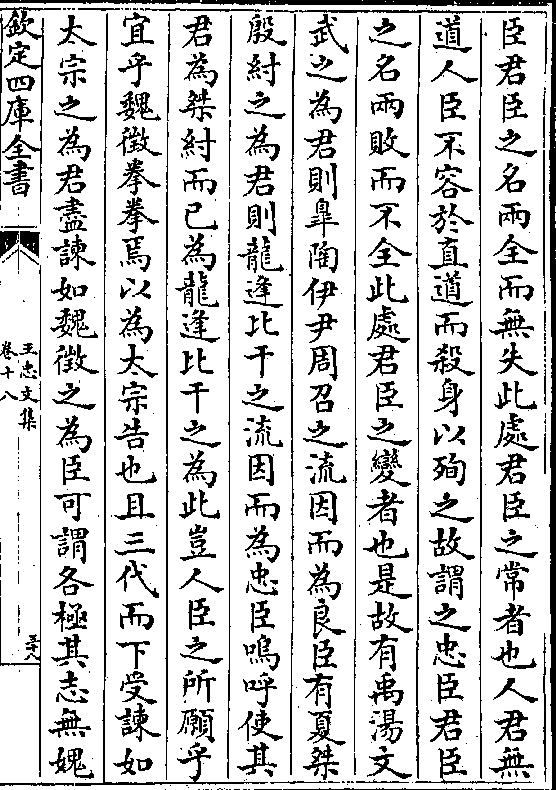 臣君臣之名兩全而無失此處君臣之常者也人君無
道人臣不容於直道而殺身以殉之故謂之忠臣君臣
之名兩敗而不全此處君臣之變者也是故有禹湯文
武之為君則臯陶伊尹周召之流因而為良臣有夏桀
殷紂之為君則龍逢比干之流因而為忠臣嗚呼使其
君為桀紂而已為龍逢比干之為此豈人臣之所願乎
宜乎魏徵拳拳焉以為太宗告也且三代而下受諫如
太宗之為君盡諫如魏徵之為臣可謂各極其志無媿
欽定四庫全書
王忠文集
卷十八
三十八